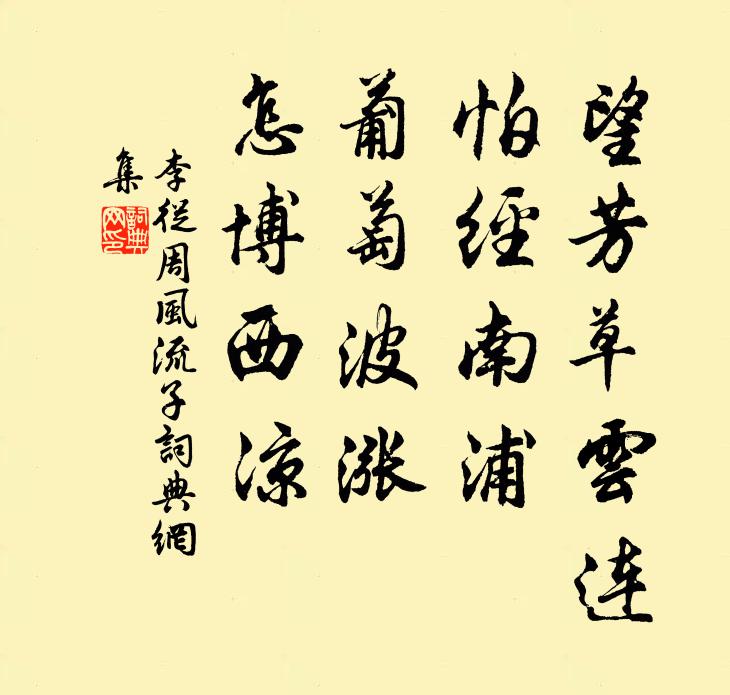 望芳草雲連
怕經南浦
葡萄波漲
怎博西涼
李從周風流子詞典網
集
詞典網印